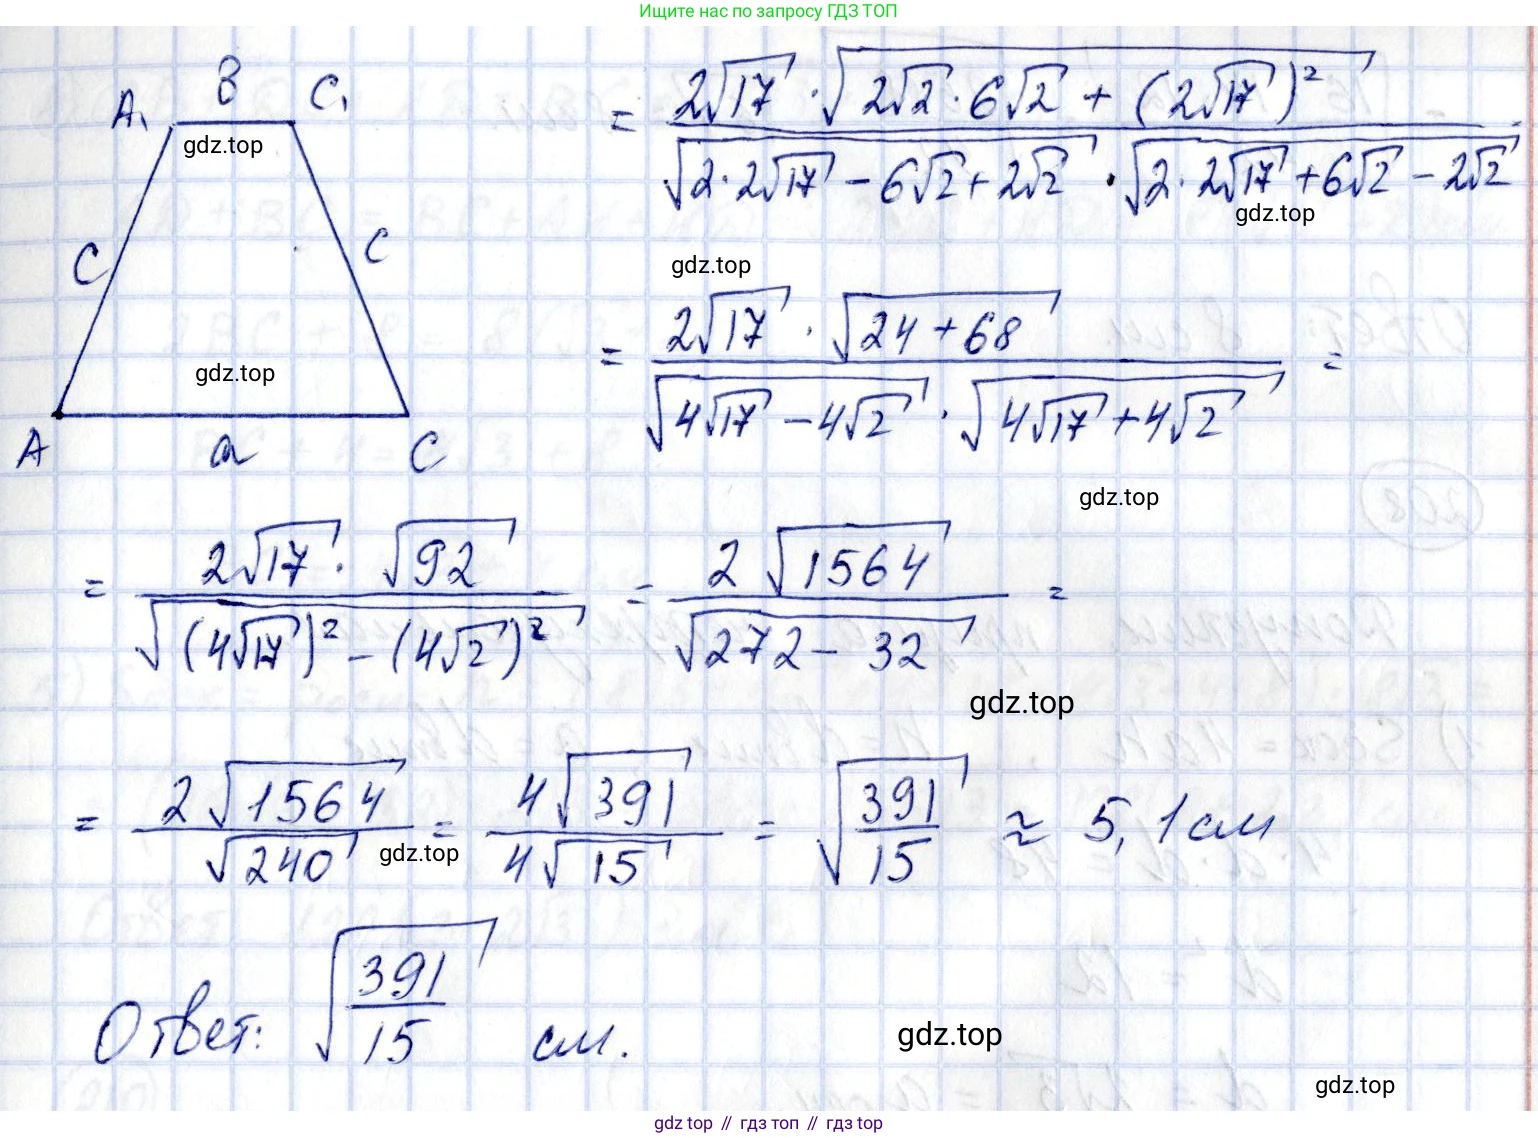 Ищите нас по запросу ГДЗ ТОП
A₁ B C₁
gdz.top
C C
gdz.top
A a C
= (2√17 · √(2√2 · 6√2 + (2√17)²)) / (√(2 · 2√17 − 6√2 + 2√2) · √(2 · 2√17 + 6√2 − 2√2))
gdz.top
gdz.top
= (2√17 · √(24 + 68)) / (√(4√17 − 4√2) · √(4√17 + 4√2)) =
gdz.top
= (2√17 · √92) / √((4√17)² − (4√2)²) = (2√1564) / √(272 − 32) =
gdz.top
= (2√1564) / √240 = (4√391) / (4√15) = √(391/15) ≈ 5,1 см
gdz.top
Ответ: √(391/15) см.
gdz.top
gdz.top
gdz top // гдз топ // гдз top